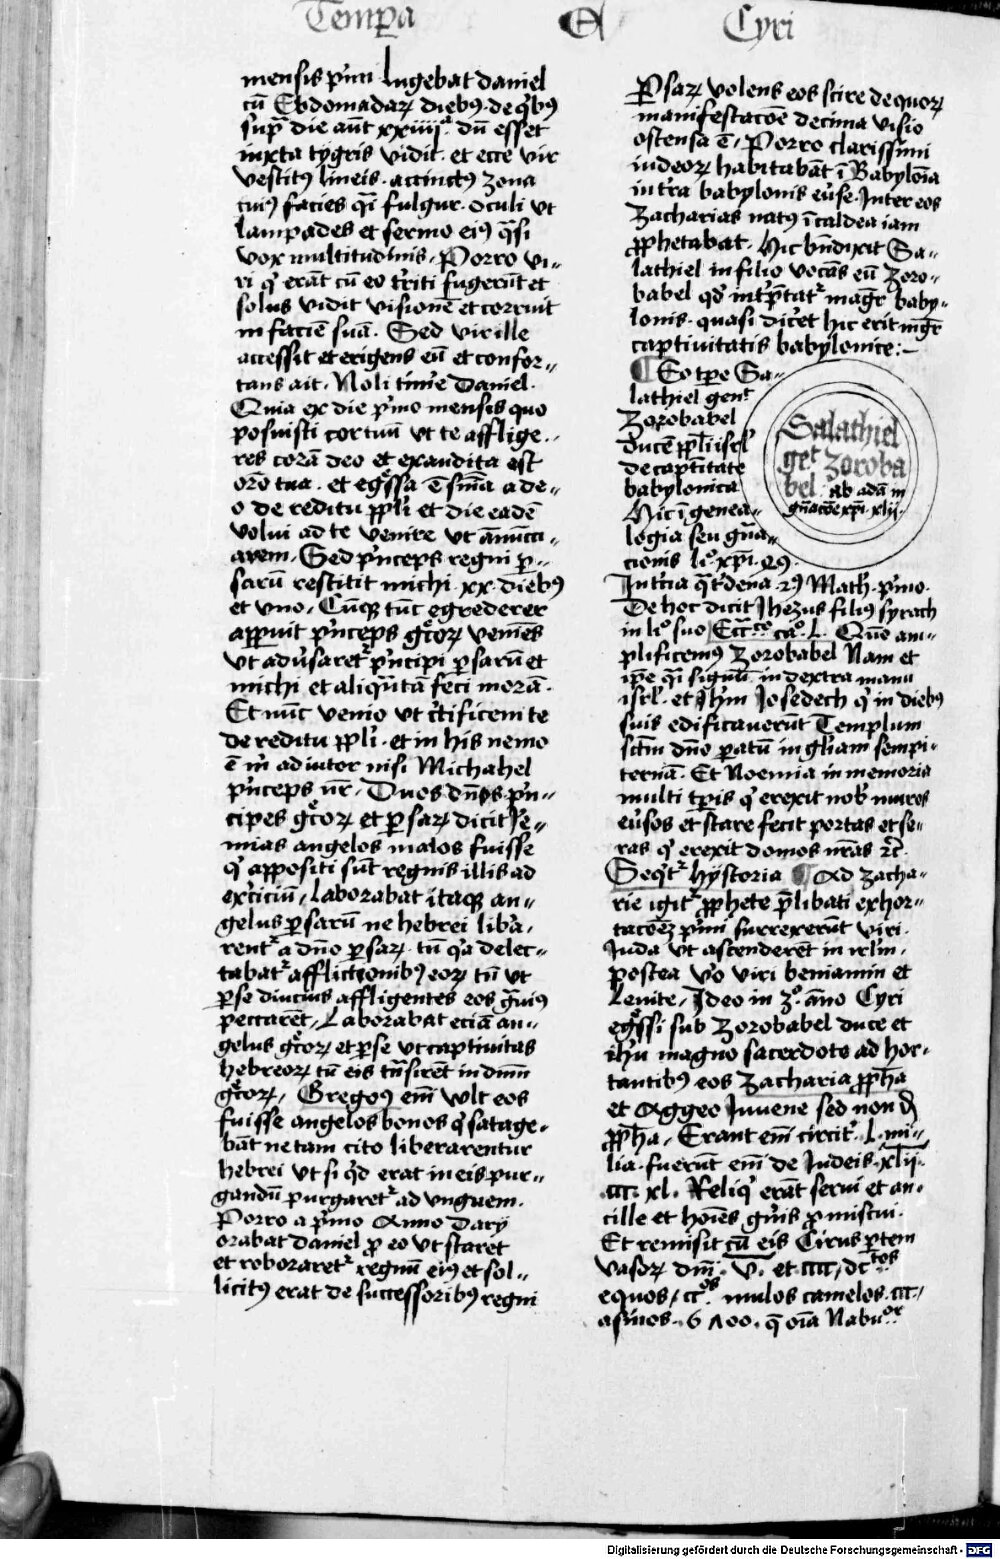 Temp̲a Et Cyri
mensis p'mi lugebat daniel
cū Ebdomadaꝝ diebꝰ. de q'bꝰ
sup̄ die aūt xxiiij. dū esset
iuxta tygris vidit. et ecce vir
vestitꝰ lineis. accinctꝰ zona
cuiꝰ facies q̄i fulgur. oculi vt
lampades et sermo eiꝰ q̄si
vox multitudinis. Porro vi-
ri q' erāt cū eo t'riti fugerūt et
solus vidit visionē et corruit
in faciē suā. Sed vir ille
accessit et erigens eū et confor-
tans ait. Noli time Daniel.
Quia ex die p'mo mensis quo
posuisti cor tuū vt te afflige-
res corā deo et exaudita est
orō tua. et eg'ssa ē s̄nia a de-
o de reditu ppl'i et die eadē
volui ad te venire vt ānūcci-
arem. Sed p'nceps regni p̲-
sarū restitit michi .xx. diebꝰ
et vno. Cūq; tūc egrederer
apparuit p'nceps g'coꝝ veniēs
vt adūsaret' p'ncipi p̲sarū et
michi et aliq̄ntā feci morā.
Et nūc venio vt c'tificem te
de reditu ppl'i. et in his nemo
ē m' adiutor nisi Michahel
p'nceps vr̄. Duos dn̄os p'n-
cipes g'coꝝ et p̲saꝝ dicit Je-
mias angelos malos fuisse
q' appositi sūt regnis illis ad
ex'ciciū. Laborabat itaq; an-
gelus p̲sarū ne hebrei liba-
rent' a dn̄o p̲saꝝ. tū q'a delec-
tabat' afflictionibꝰ eoꝝ tū vt
p̲se diucius affligentes eos g'uiꝰ
peccarēt. Laborabat eciā an-
gelus g'coꝝ et p̲se vt captiuitas
hebreoꝝ tū eis trā̄sirēt in dn̄m
g'coꝝ. Gregoꝰ em̄ vult eos
fuisse angelos bonos q' satage-
bāt ne tam cito liberarentur
hebrei vt si q'd erat in eis pur-
gandū purgaret' ad vnguem.
Porro a p'mo Anno Darij
orabat daniel p̲ eo vt staret
et roboraret' regnū eiꝰ et sol-
licitꝰ erat de successoribꝰ regni
P̲saꝝ volens eos scire de quoꝝ
manifestacōe decima visio
ostensa ē. Porro clarissimi
iudeoꝝ habitabāt ī Babylōia
intra babylonis eūse. Inter eos
Zacharias natꝰ ī caldea iam
pphetabat. Hic bn̄dixit Sa-
lathiel in filio vocās eū Zoro-
babel qd' int'p̄tat' mag̅r baby-
lonis. quasi dic'et hic erit mgr̄
captiuitatis babylonice:-
¶ Eo tp̄e Sa-
lathiel gen't
Zorobabel
ducē ppl'i isrl'
de captītate
babylonica
Hic ī genea-
logia seu gn̄a-
cionis li° xp̄i.
Salathiel
get Zoroba
bel. ab adā in
gn̄acōe xp̄i. xlij.
Math. p'mo.
De hoc dicit Jhezus filiꝰ syrach
in li° suo Ecc̄co ca°. L. Quō am-
plificemꝰ Zorobabel Nam et
ip̄e q̄i signū in dextra manu
isrl'. et Jhm̄ Josedech q' in diebꝰ
suis edificauerūt Templum
sc̄tm dn̄o p̲atū in gl'iam sempi-
ternā. Et Noemia in memoria
multi tp̄is q' erexit nob' muros
eūsos et stare fecit portas et se-
ras q' erexit domos nr̄as ꝛc̄.
Seqt' hystoria ¶ Ad zacha-
rie igit' pphete p̄libati exhor-
tacōez p'mi surrexerūt viri
Juda vt ascenderēt in irl'm.
postea v̊o viri beniamin et
Leuite. Ideo in 3°. āno Cyri
eg'ssi sub Zorobabel duce et
ih'u magno sacerdote ad hor-
tantibꝰ eos zacharia pph̄a
et Aggeo Juuene sed non
pph̄a. Erant em̄ circit'. L. mi-
lia. fuerūt em̄ de Iudeis. xlij.
.ccc. xl. Reliq' erāt serui et an-
cille et hoīes g'uis p̲miscui.
Et remisit cū eis Cirus p̲tem
vasoꝝ dm̄. v. et cccc, dctos
equos, cc.os mulos camelos. ccc,
asinos. 6700. q̄ oīa Nabuor